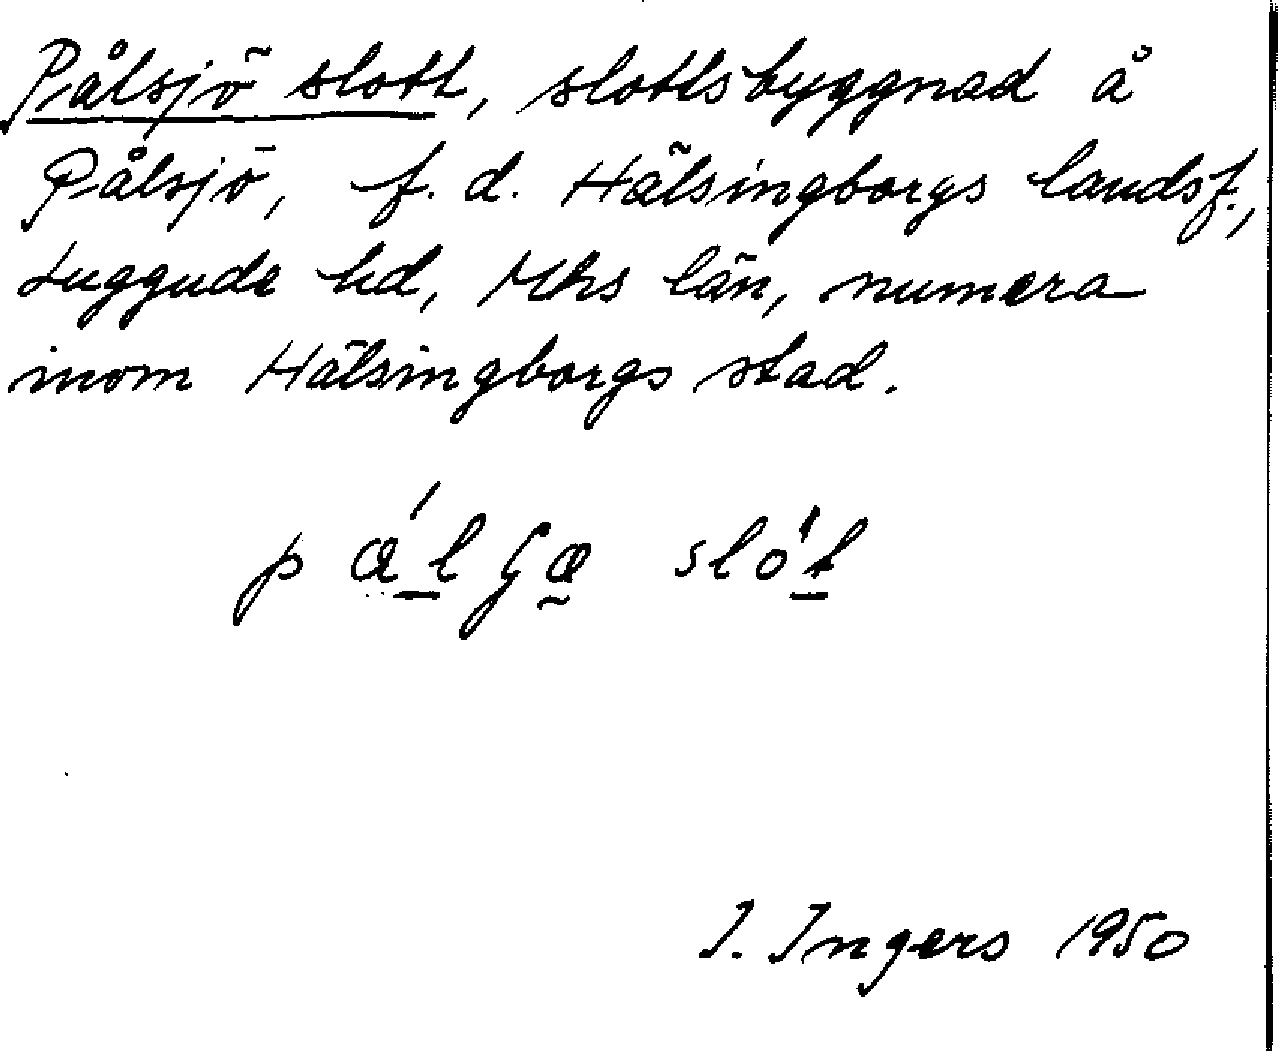 Pålsjö slott, slottsbyggnad å
Pålsjö, f. d. Hälsingborgs landsf.,
Luggude hd, Mhs län, numera
inom Hälsingborgs stad.
slo't
I. Ingers 1950